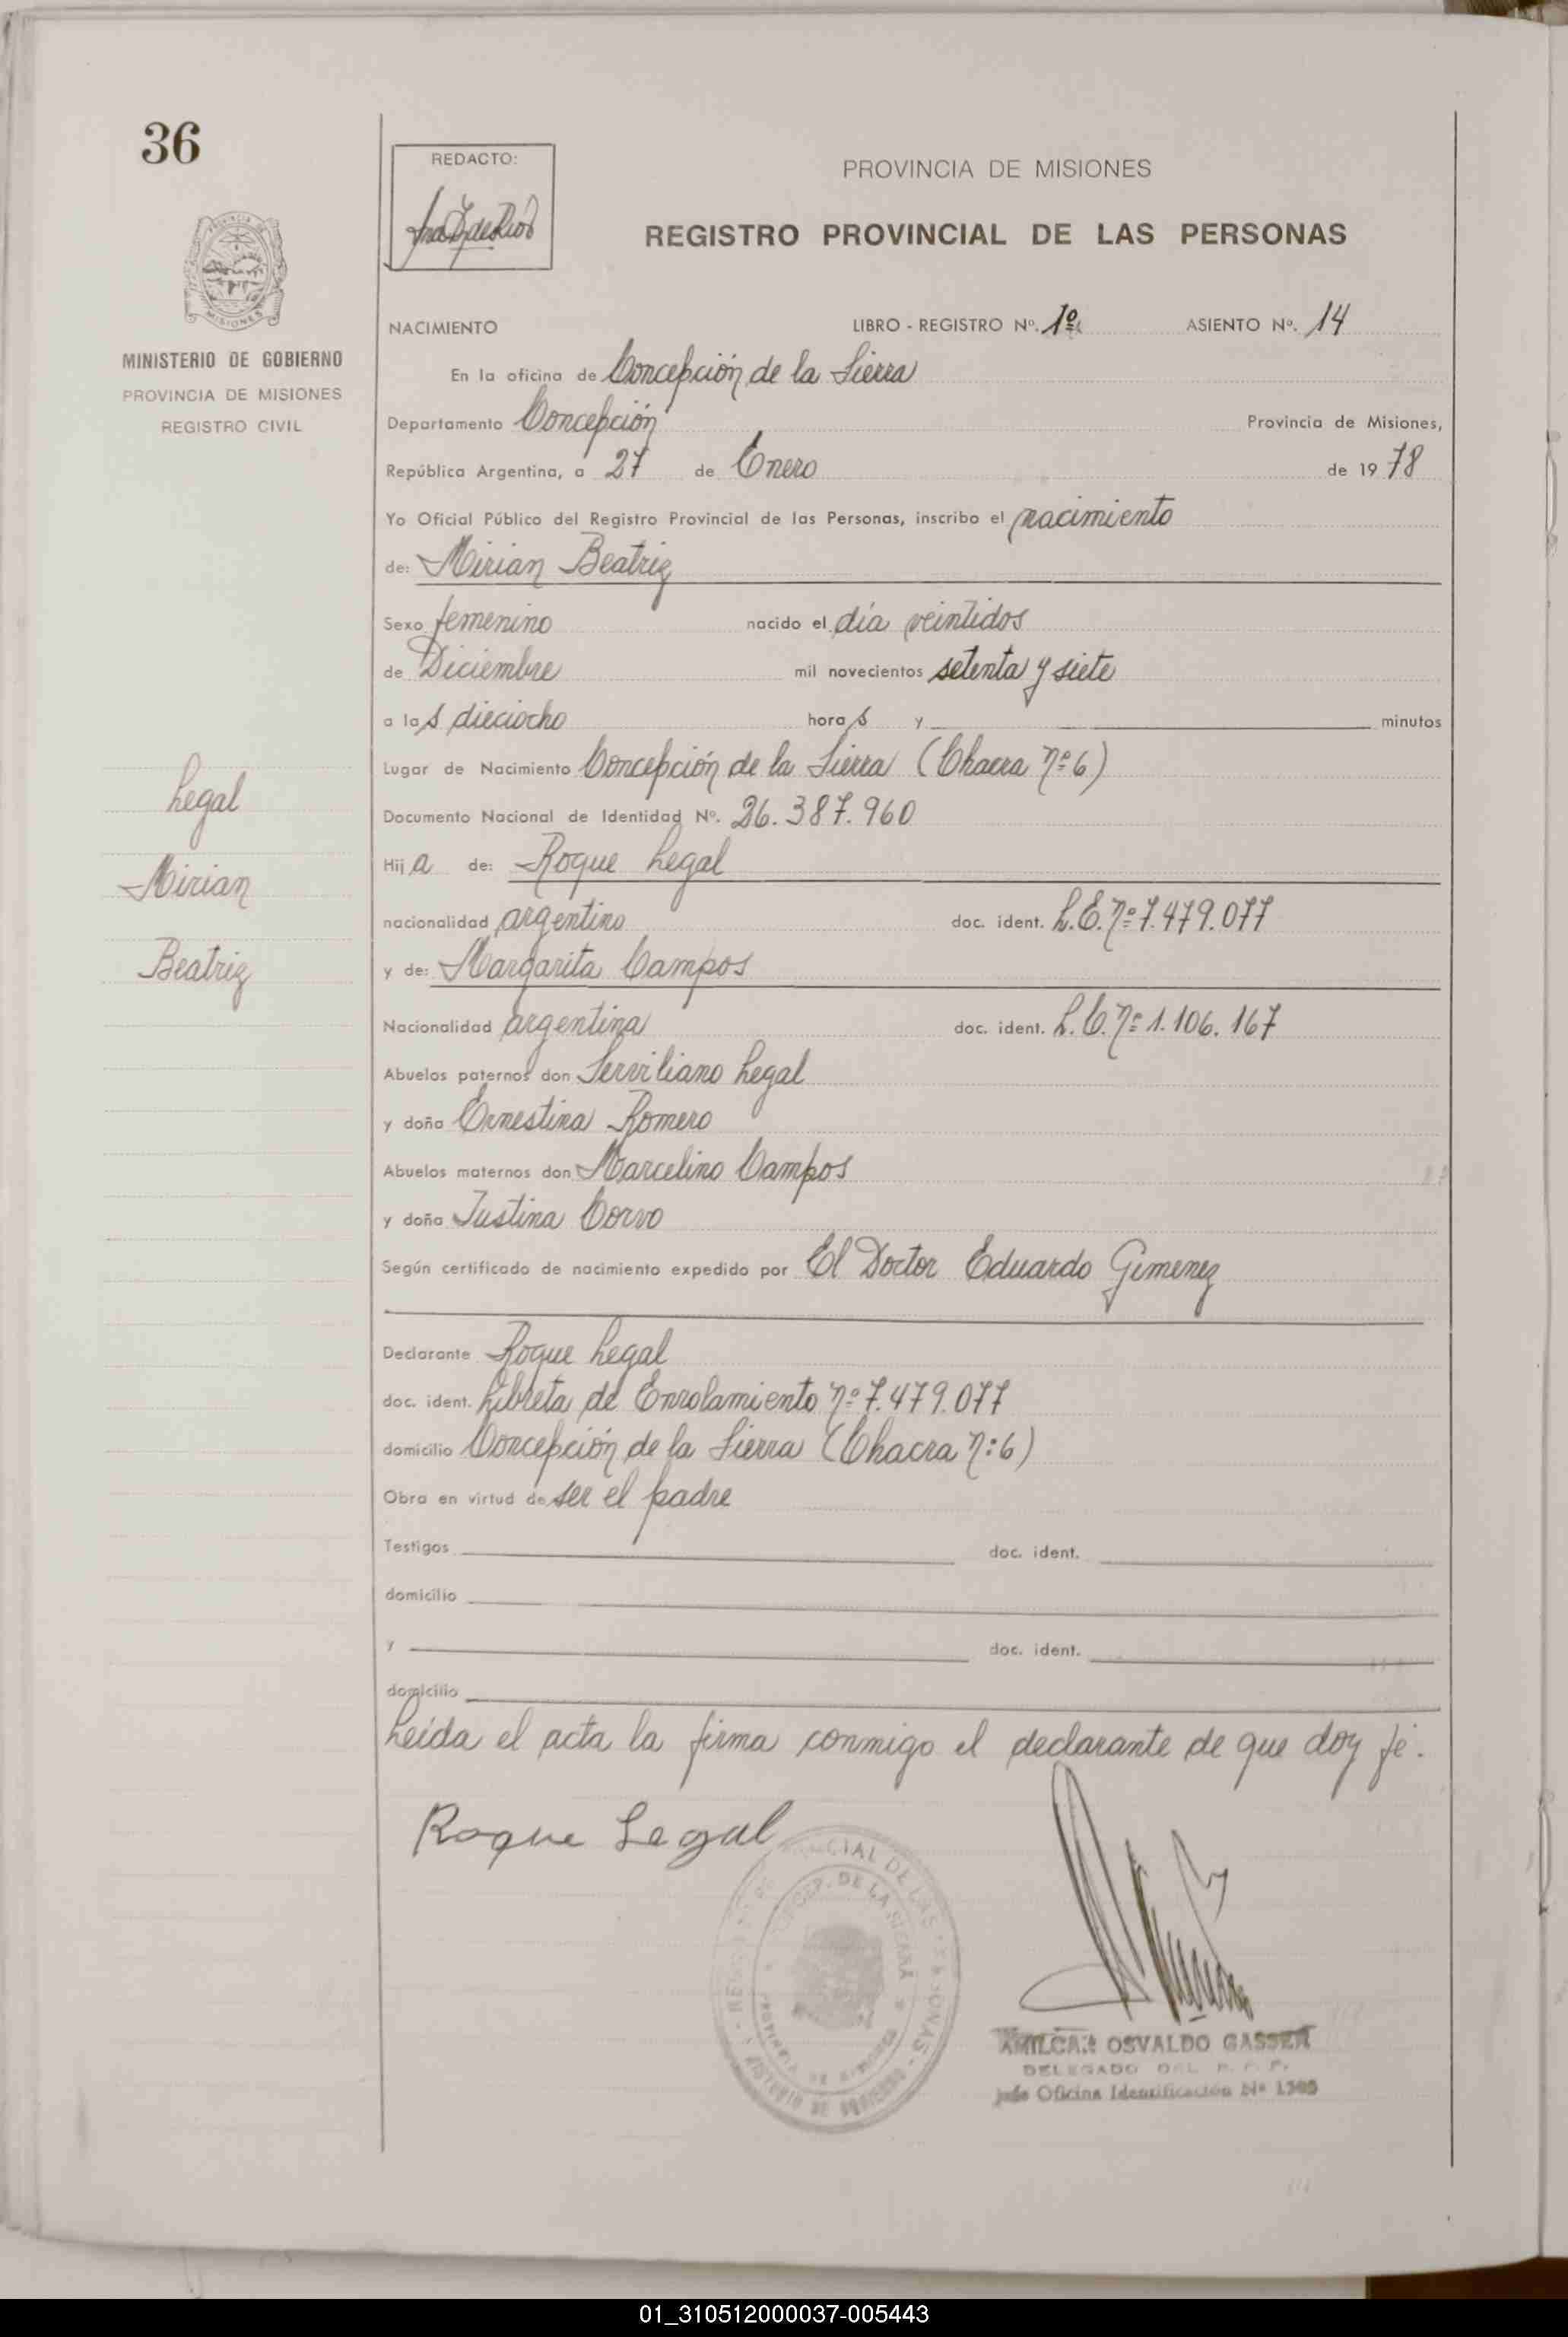 36
REDACTO:
PROVINCIA DE MISIONES
REGISTRO PROVINCIAL DE LAS PERSONAS
MINISTERIO DE GOBIERNO
PROVINCIA DE MISIONES
REGISTRO CIVIL
NACIMIENTO LIBRO - REGISTRO Nº. 1º ASIENTO Nº. 14
En la oficina de Concepción de la Sierra
Departamento Concepción Provincia de Misiones,
República Argentina, a 27 de Enero de 1978
Yo Oficial Público del Registro Provincial de las Personas, inscribo el nacimiento
de: Mirian Beatriz
Sexo femenino nacido el día veintidos
de Diciembre mil novecientos setenta y siete
a las dieciocho horas y minutos
Lugar de Nacimiento Concepción de la Sierra (Chacra nº 6)
Documento Nacional de Identidad Nº. 26.387.960
Hija de: Roque Legal
nacionalidad argentino doc. ident. L.E. nº 7.479.077
y de: Margarita Campos
Nacionalidad argentina doc. ident. L.C. nº 1.106.167
Abuelos paternos don Serviliano Legal
y doña Ernestina Romero
Abuelos maternos don Marcelino Campos
y doña Justina Corvo
Según certificado de nacimiento expedido por El Doctor Eduardo Gimenez
Declarante Roque Legal
doc. ident. Libreta de Enrolamiento nº 7.479.077
domicilio Concepción de la Sierra (Chacra nº 6)
Obra en virtud de ser el padre
Testigos doc. ident.
domicilio
y doc. ident.
domicilio
Leída el acta la firma conmigo el declarante de que doy fé.
Legal
Mirian
Beatriz
Roque Legal
AMILCAR OSVALDO GASSER
DELEGADO DEL R. P. P.
Jefe Oficina Identificación Nº
01_310512000037-005443